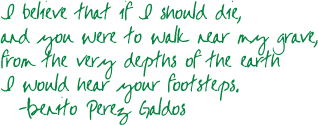 I believe that if I should die,
and you were to walk near my grave,
from the very depths of the earth
I would hear your footsteps.
-Benito Perez Galdos